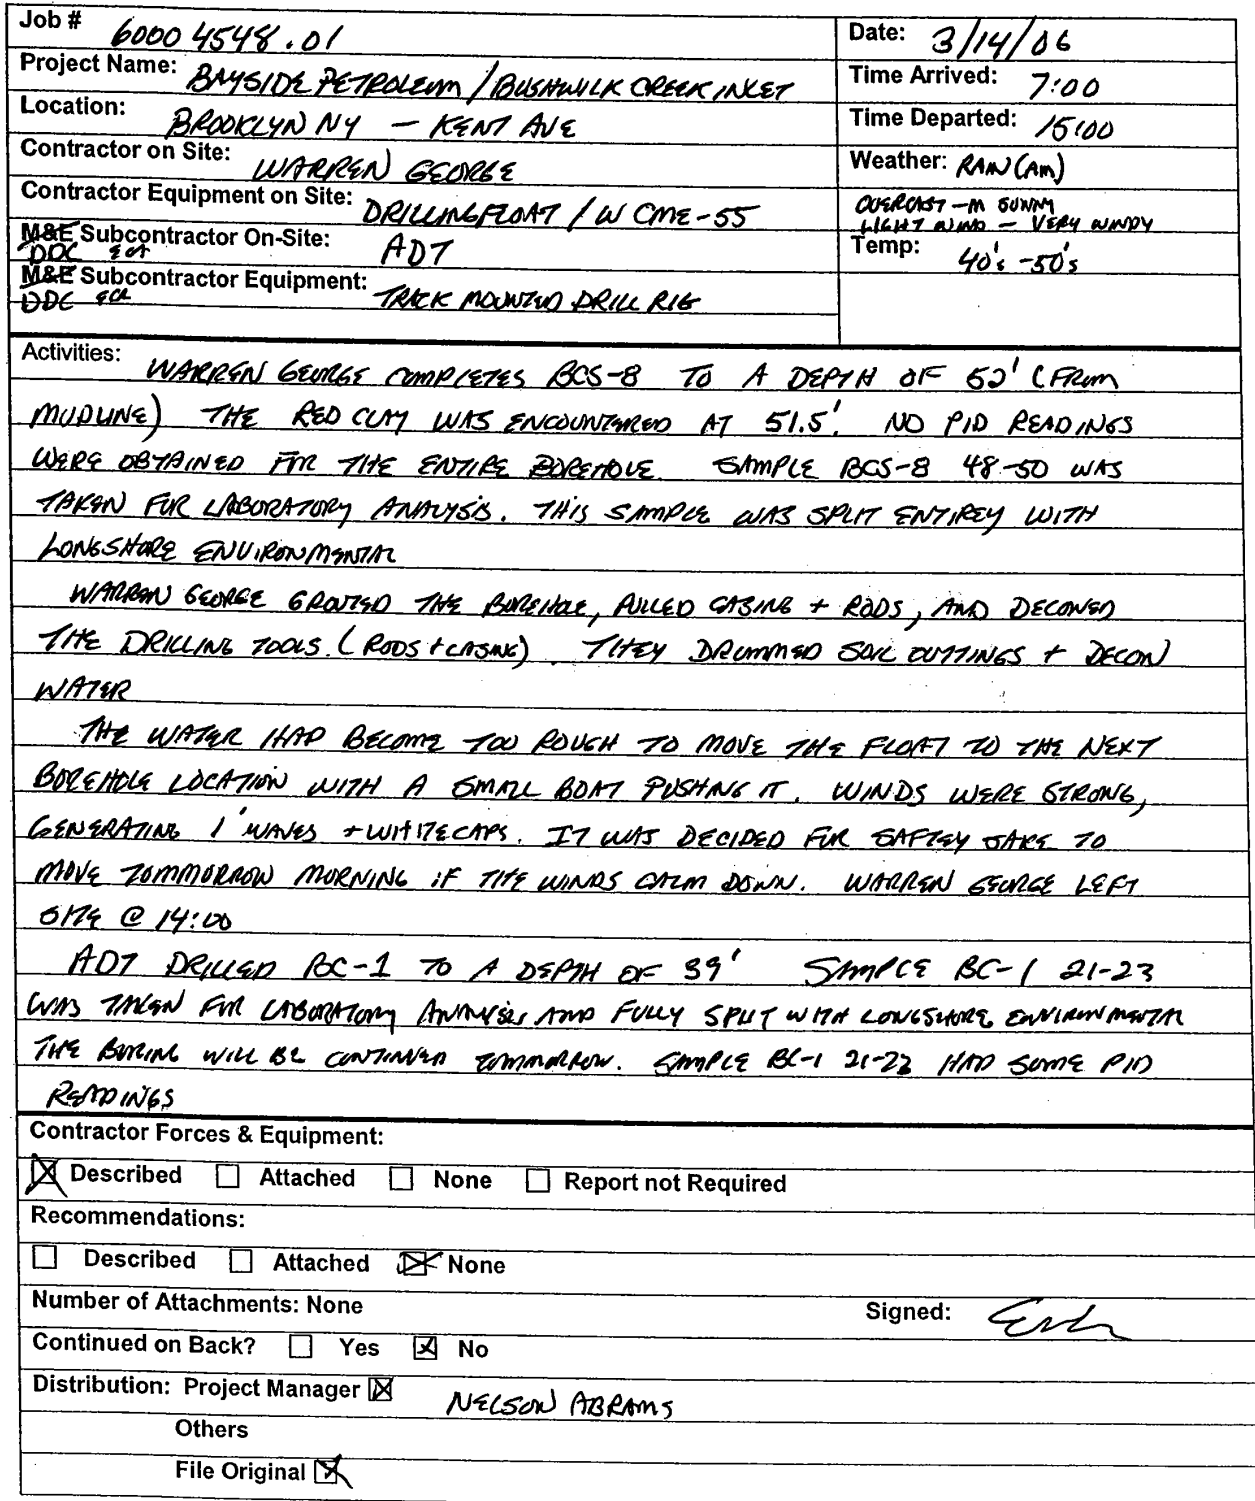 Job # 6000 4548.01
Date: 3/14/06
Project Name: BAYSIDE PETROLEUM / BUSHWICK CREEK INLET
Time Arrived: 7:00
Location: BROOKLYN NY - KENT AVE
Time Departed: 15:00
Contractor on Site: WARREN GEORGE
Weather: RAIN (AM)
Contractor Equipment on Site: DRILLING FLOAT / W CME-55
OVERCAST - M SUNNY
LIGHT WIND - VERY WINDY
M&E Subcontractor On-Site: ADT
DDC
Temp: 40's - 50's
M&E Subcontractor Equipment: TRACK MOUNTED DRILL RIG
DDC
Activities: WARREN GEORGE COMPLETES BCS-8 TO A DEPTH OF 52' (FROM
MUDLINE) THE RED CLAY WAS ENCOUNTERED AT 51.5'. NO PID READINGS
WERE OBTAINED FOR THE ENTIRE BOREHOLE. SAMPLE BCS-8 48-50 WAS
TAKEN FOR LABORATORY ANALYSIS. THIS SAMPLE WAS SPLIT ENTIREY WITH
LONGSHORE ENVIRONMENTAL
WARREN GEORGE GROUTED THE BOREHOLE, PULLED CASING + RODS, AND DECONED
THE DRILLING TOOLS. (RODS + CASING). THEY DRUMMED SOIL CUTTINGS + DECON
WATER
THE WATER HAD BECOME TOO ROUGH TO MOVE THE FLOAT TO THE NEXT
BOREHOLE LOCATION WITH A SMALL BOAT PUSHING IT. WINDS WERE STRONG,
GENERATING 1' WAVES + WHITECAPS. IT WAS DECIDED FOR SAFTEY SAKE TO
MOVE TOMMORROW MORNING IF THE WINDS CALM DOWN. WARREN GEORGE LEFT
SITE @ 14:00
ADT DRILLED BC-1 TO A DEPTH OF 39' SAMPLE BC-1 21-23
WAS TAKEN FOR LABORATORY ANALYSIS AND FULLY SPLIT WITH LONGSHORE ENVIRONMENTAL
THE BORING WILL BE CONTINUED TOMMORROW. SAMPLE BC-1 21-23 HAD SOME PID
READINGS
Contractor Forces & Equipment:
Described Attached None Report not Required
Recommendations:
Described Attached None
Number of Attachments: None
Signed:
Continued on Back? Yes No
Distribution: Project Manager NELSON ABRAMS
Others
File Original